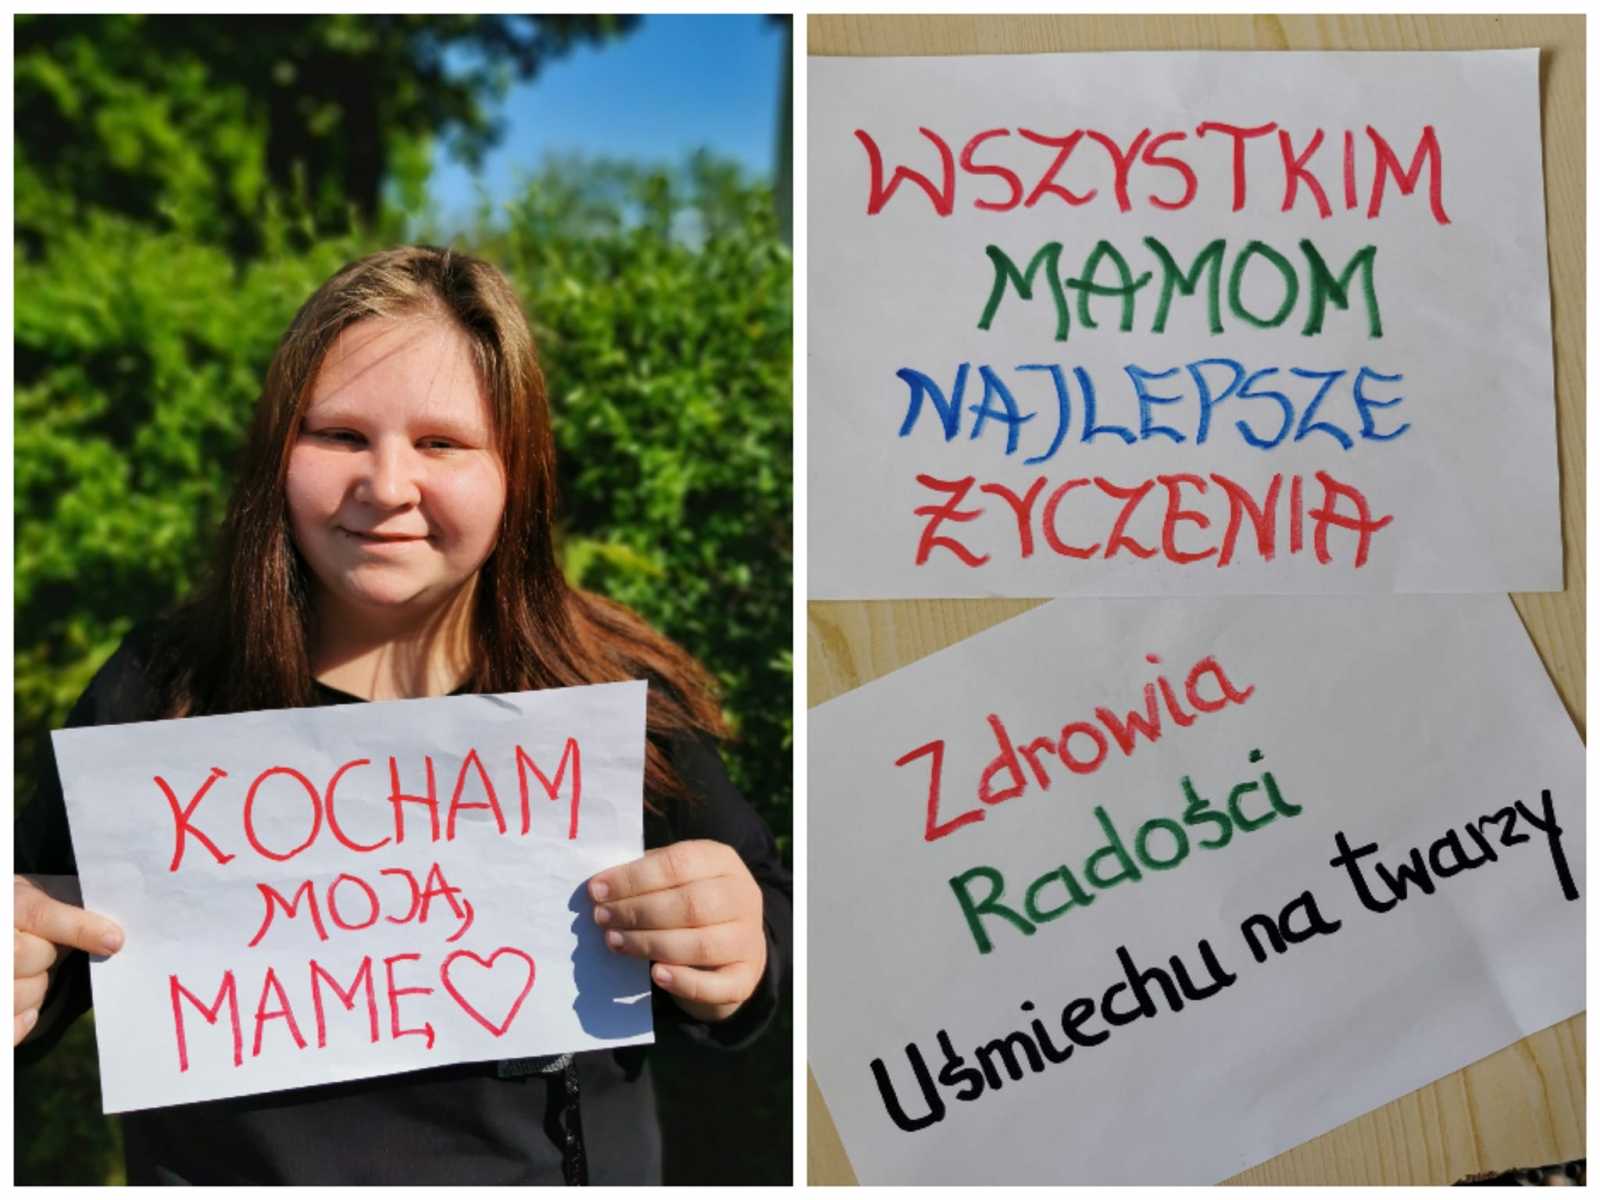 KOCHAM
MOJĄ
MAMĘ
WSZYSTKIM
MAMOM
NAJLEPSZE
ŻYCZENIA
Zdrowia
Radości
Uśmiechu na twarzy